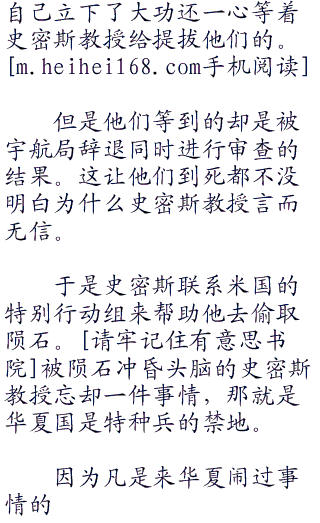 自己立下了大功还一心等着
史密斯教授给提拔他们的。
[m.heihei168.com手机阅读]
但是他们等到的却是被
宇航局辞退同时进行审查的
结果。这让他们到死都不没
明白为什么史密斯教授言而
无信。
于是史密斯联系米国的
特别行动组来帮助他去偷取
陨石。[请牢记住有意思书
院]被陨石冲昏头脑的史密斯
教授忘却一件事情，那就是
华夏国是特种兵的禁地。
因为凡是来华夏闹过事
情的